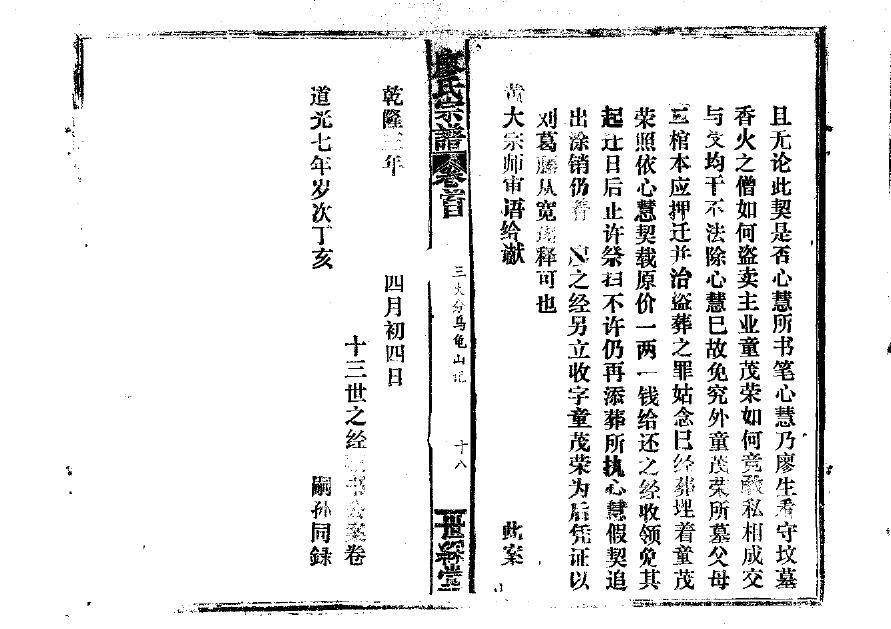 且无论此契是否心慧所书笔心慧乃廖生看守坟墓
香火之僧如何盗卖主业童茂荣如何竟敢私相成交
与受均干不法除心慧已故免究外童茂荣所墓父母
三棺本应押迁并治盗葬之罪姑念已经葬埋着童茂
荣照依心慧契载原价一两一钱给还之经收领免其
起迁日后止许祭扫不许仍再添葬所执心慧假契追
出涂销仍着 之经另立收字童茂荣为后凭证以
刈葛藤从宽 释可也
黄大宗师审语给谳 此案
廖氏宗谱 卷首
三大分乌龟山记 十八
世綵堂
乾隆三年 四月初四日
十三世之经 书公案卷
道光七年岁次丁亥 嗣孙同录